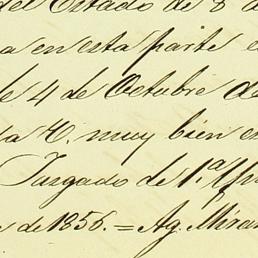 del Estado de 8 d
a en esta parte e
le 4 de Octubre de
la V. muy bien en
Juzgado de 1.ª Yns
s de 1856. = Ag. Miran